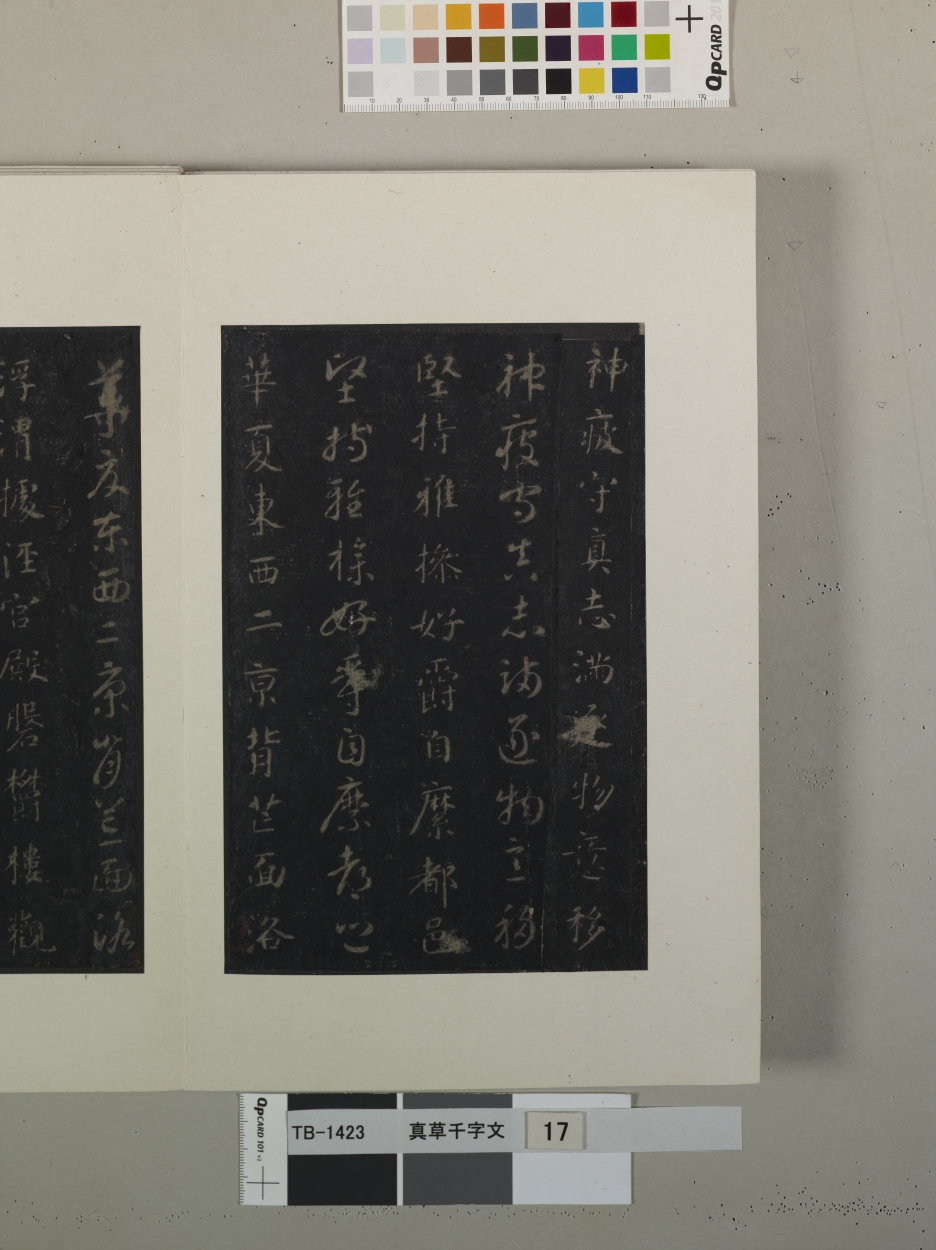 神疲守真志滿逐物意移
神疲守真志滿逐物意移
堅持雅操好爵自縻都邑
堅持雅操好爵自縻都邑
華夏東西二京背芒面洛
華夏東西二京背芒面洛
浮渭據涇宮殿磐鬱樓觀
QpCARD 201
10 20 30 40 50 60 70 80 90 100 110 130
QpCARD 101 v2
TB-1423 真草千字文 17